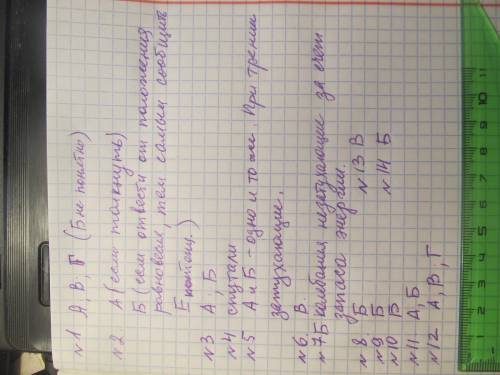 №1 А, В, Г (Б не понятно)
№2 А (если толкнуть)
Б (если отвести от положения
равновесия, тем самым сообщить
Е потенц.)
№3 А, Б
№4 спутали
№5 А и Б - одно и то же. При трении
затухающие.
№6. В.
№7 Б колебания незатухающие за счет
запаса энергии.
№8 Б №13 В
№9 Б №14 Б
№10 В
№11 А, Б
№12 А, В, Г
1 2 3 4 5 6 7 8 9 10 11